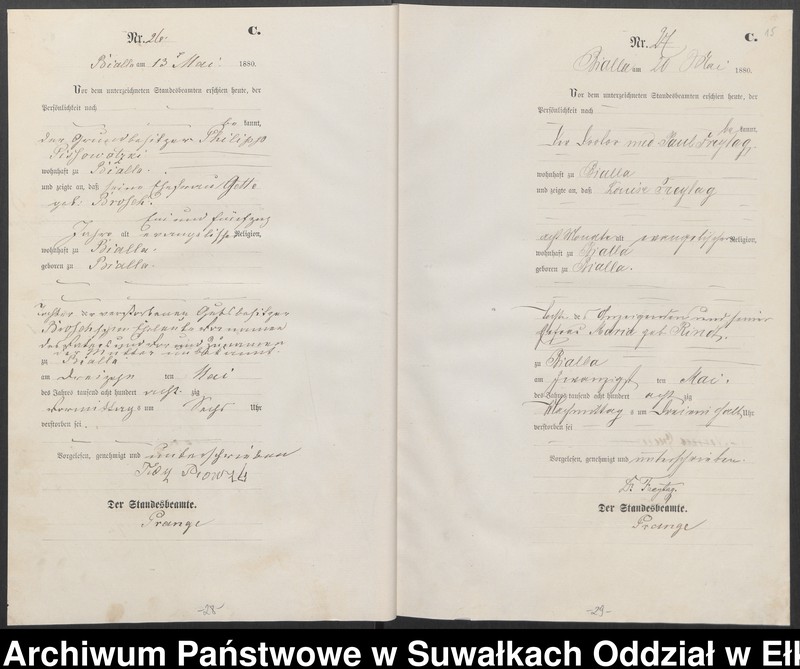 Nr. 26.
C.
Bialla am 13 Mai 1880.
Vor dem unterzeichneten Standesbeamten erschien heute, der
Persönlichkeit nach
be kannt,
der Grundbesitzer Philipp
wohnhaft zu Bialla.
und zeigte an, daß seine Ehefrau Gotte
geb. Brosch.
Ein und fünfzig
Jahre alt evangelischer Religion,
wohnhaft zu Bialla.
geboren zu Bialla.
Tochter der verstorbenen Gutsbesitzer
Broschschen Eheleute
des Vaters und Vor und Zunamen
der Mutter unbekannt.
zu Bialla
am dreizehn ten Mai
des Jahres tausend acht hundert acht zig
Vormittags um Sechs Uhr
verstorben sei.
Vorgelesen, genehmigt und unterschrieben
Der Standesbeamte.
Prange
-28-
Nr. 27
C.
Bialla am 20 Mai 1880.
Vor dem unterzeichneten Standesbeamten erschien heute, der
Persönlichkeit nach
be kannt,
Der Doctor med Paul Freytag,
wohnhaft zu Bialla
und zeigte an, daß Louise Freytag
acht Monate alt evangelischer Religion,
wohnhaft zu Bialla
geboren zu Bialla.
Tochter des Anzeigenden und seiner
Ehefrau Maria geb
zu Bialla
am zwanzigst ten Mai.
des Jahres tausend acht hundert acht zig
Nachmittag s um Drei ein halb Uhr
verstorben sei
Vorgelesen, genehmigt und unterschrieben.
Dr Freytag.
Der Standesbeamte.
Prange
-29-
Archiwum Państwowe w Suwałkach Oddział w Eł